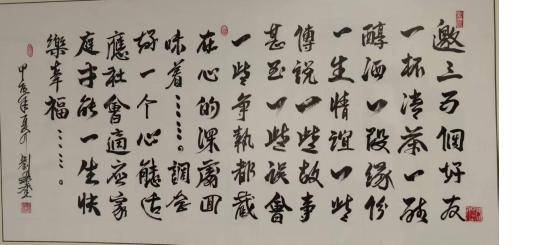 邀三五個好友
一杯清茶一
醇酒一段緣份
一生情誼一些
傳說一些故事
甚至一些誤會
一些爭執都藏
在心的深處回
味着……。調整
好一个心態适
應社會適应家
庭才能一生快
樂幸福……。
甲辰年夏月 劉